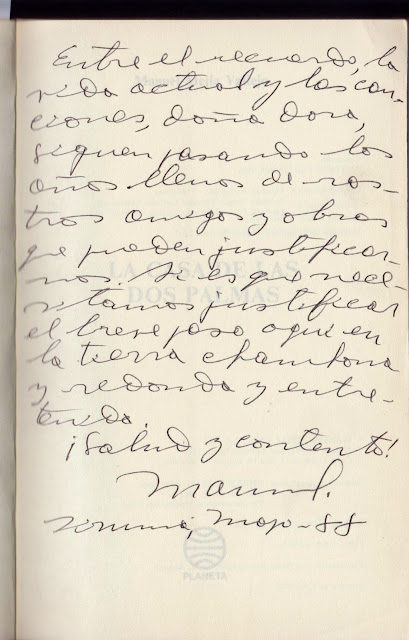 Entre el recuerdo, la
vida actual y las can-
ciones, doña Dora,
siguen pasando los
años llenos de ros-
tros amigos y obras
que pueden justificar-
nos. Si es que nece-
sitamos justificar
el breve paso aquí en
la tierra chambona
y redonda y entre-
tenida.
¡Salud y contento!
Manuel.
Mayo-88
LA CASA DE LAS
DOS PALMAS
PLANETA